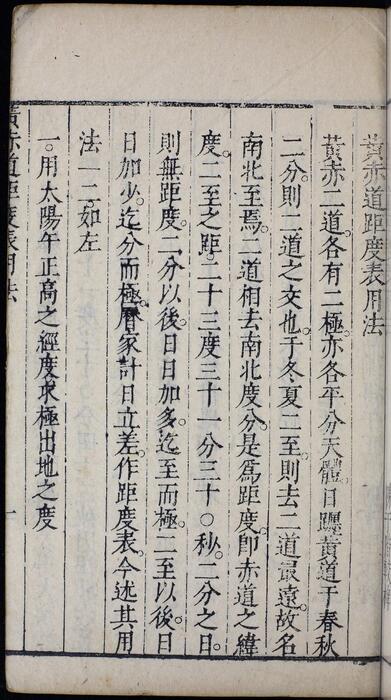 黃赤道距度表用法
黃赤二道。各有二極。亦各平分天體。日躔黃道。于春秋
二分。則二道之交也。于冬夏二至。則去二道最遠。故名
南北至焉。二道相去南北度分。是爲距度。卽赤道之緯
度。二至之距。二十三度三十一分三十〇秒。二分之日。
則無距度。二分以後。日日加多。迄至而極。二至以後。日
日加少。迄分而極。曆家計日立差。作距度表。今述其用
法一二如左
一。用太陽午正高之經度求極出地之度
黃赤道距度表用法
一